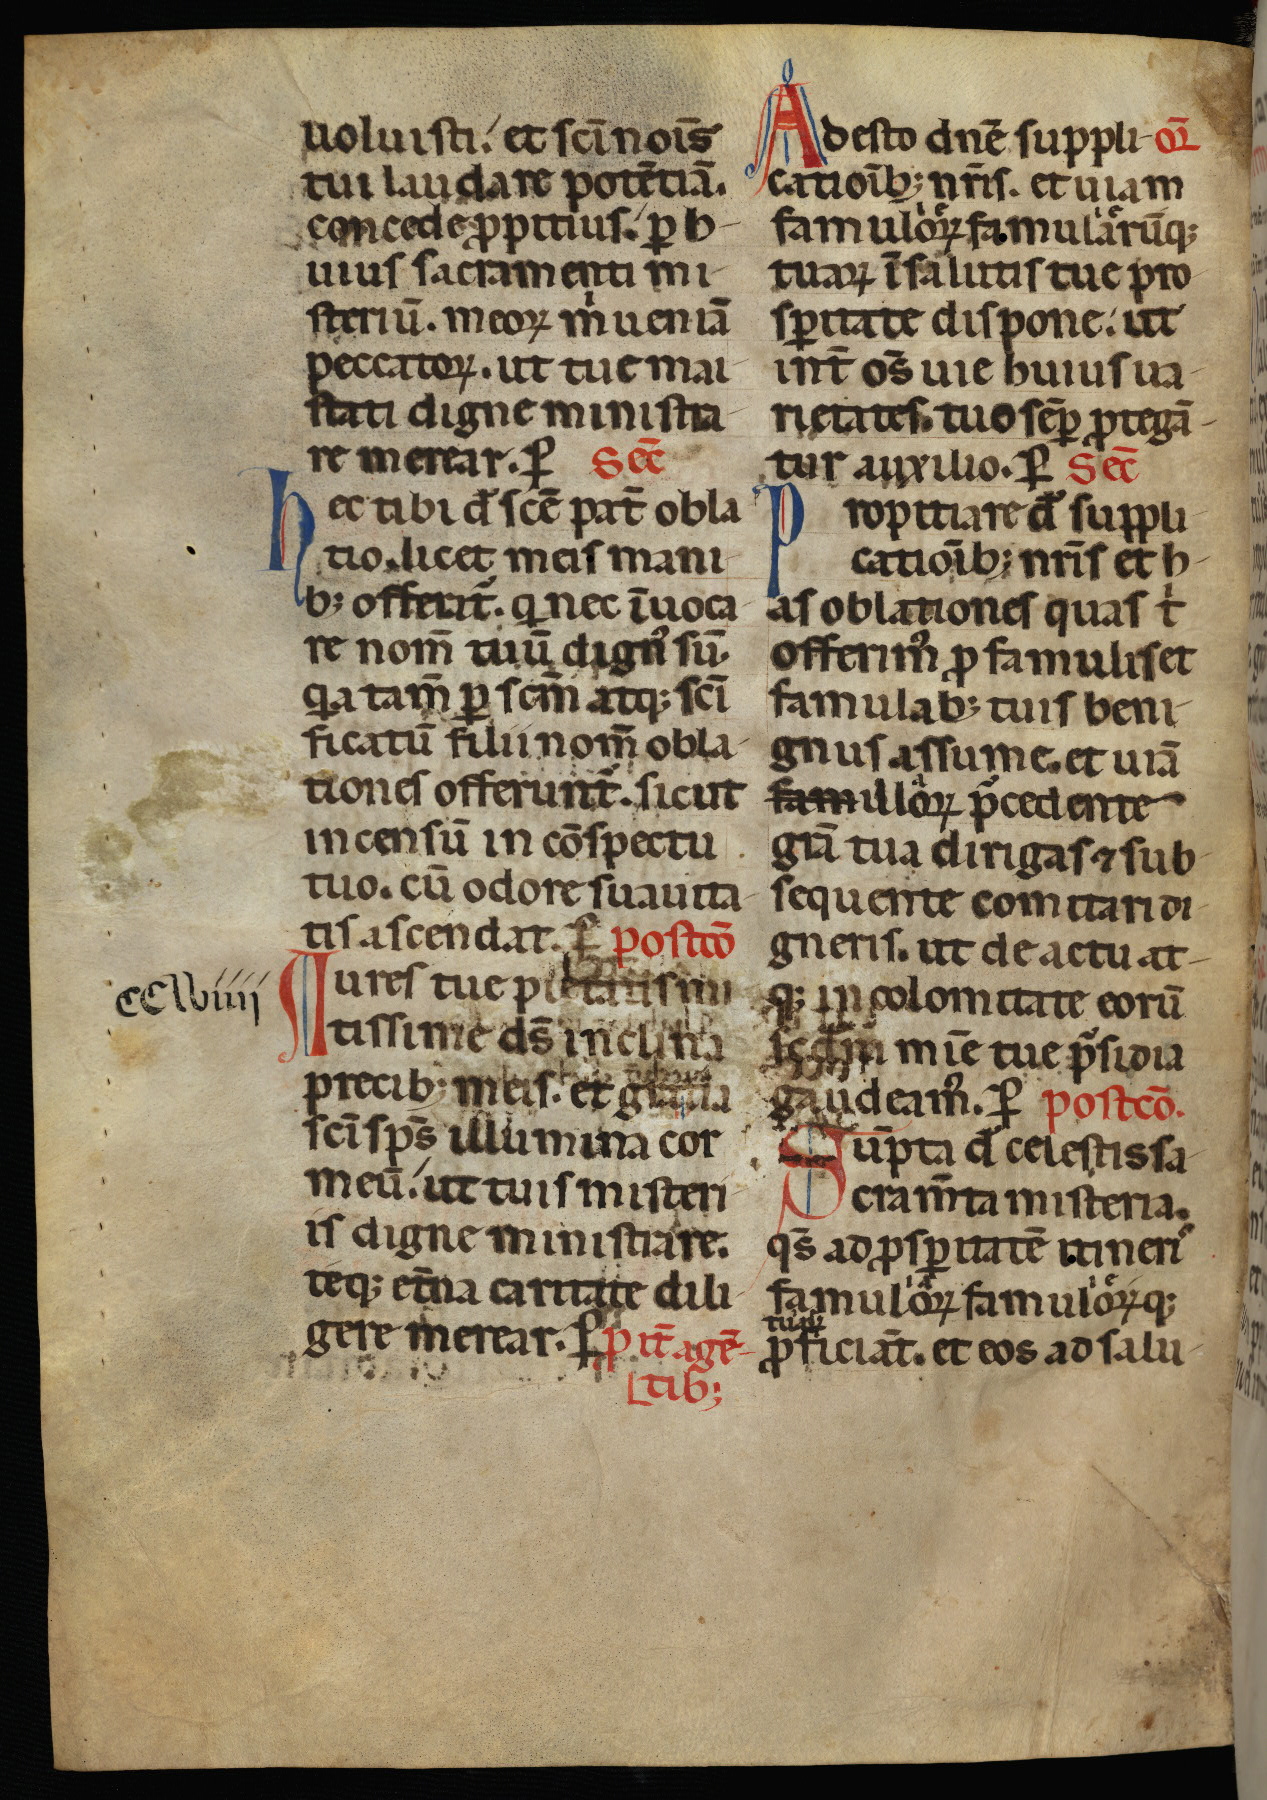 uoluisti. et scī noīs
tui laudare potētiā.
concede ꝓpitius. ꝑ h-
uius sacramenti mi-
steriū. meoꝝ mͥ ueniā
peccatoꝝ. ut tue mai
stati digne ministra-
re merear. ꝑ Sec̄
hec tibi dš sce pat̄ obla
tio. licet meis mani-
bꝫ offerat̄. q nec īuoca-
re nom̄ tuū dignꝰ sū.
qa tam̄ ꝑ scm̄ atqꝫ scī
ficatū filii nom̄ obla-
tiones offerunt̄. sicut
incensū in cōspectu
tuo. cū odore suauita-
tis ascendat. ꝑ postcō
CCLVIIII
Aures tue pietatis mi
tissime ds̄ inclina
precibꝫ meis. et gratia
scī sps̄ illumina cor
meū. ut tuis misteri-
is digne ministrare.
teqꝫ et̄na caritate dili-
gere merear. ꝑ ꝓ it̄ agē-
tibꝫ
Adesto dne suppli- or̄
catioībꝫ nr̄is. et uiam
famuloꝝ famularūqꝫ
tuaꝝ ī salutis tue pro
sꝑitate dispone. ut
int̄ os̄ uie huius ua-
rietates. tuo sēꝑ ꝓtegā-
tur auxilio. ꝑ Sec̄
Propitiare dš suppli
catioībꝫ nr̄is et h-
as oblationes quas tͥ
offerimꝰ ꝓ famulis et
famulabꝫ tuis beni-
gnus assume. et uiā
famulloꝝ p̄cedente
grā tua dirigas ⁊ sub-
sequente comitari di-
gneris. ut de actu at-
qꝫ incolomitate eorū
scdm̄ mīe tue p̄sidia
gaudeamꝰ. ꝑ postcō.
Sūpta dš celestis sa-
cram̄ta misteria.
qs̄ ad ꝓsꝑitatē itineris
famuloꝝ famuloꝝqꝫ
tuoꝝ
ꝓficiāt. et eos ad salu-